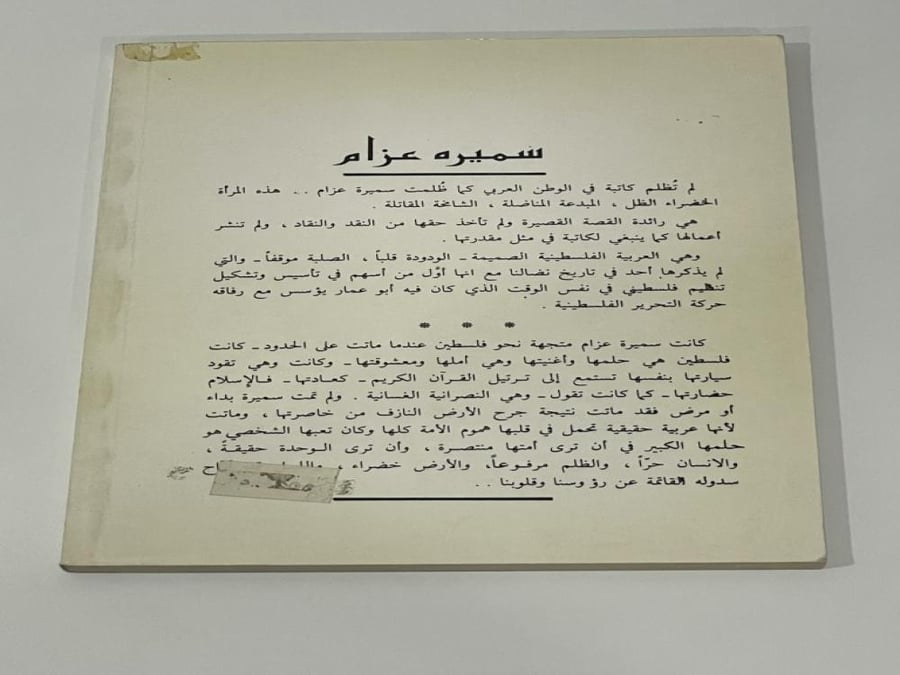 سميره عزام
لم تُظلم كاتبة في الوطن العربي كما ظُلمت سميرة عزام .. هذه المرأة
الخضراء الظل ، المبدعة المناضلة ، الشامخة المقاتلة .
هي رائدة القصة القصيرة ولم تأخذ حقها من النقد والنقاد ، ولم تنشر
أعمالها كما ينبغي لكاتبة في مثل مقدرتها .
وهي العربية الفلسطينية الصميمة ـ الودودة قلباً ، الصلبة موقفاً ـ والتي
لم يذكرها أحد في تاريخ نضالنا مع انها أوّل من أسهم في تأسيس وتشكيل
تنظيم فلسطيني في نفس الوقت الذي كان فيه أبو عمار يؤسس مع رفاقه
حركة التحرير الفلسطينية .
* * *
كانت سميرة عزام متجهة نحو فلسطين عندما ماتت على الحدود ـ كانت
فلسطين هي حلمها وأغنيتها وهي أملها ومعشوقتها ـ وكانت وهي تقود
سيارتها بنفسها تستمع إلى ترتيل القرآن الكريم ـ كعادتها ـ فالإسلام
حضارتها ـ كما كانت تقول ـ وهي النصرانية الغسانية . ولم تمت سميرة بداء
أو مرض فقد ماتت نتيجة جرح الأرض النازف من خاصرتها ، وماتت
لأنها عربية حقيقية تحمل في قلبها هموم الأمة كلها وكان تعبها الشخصي هو
حلمها الكبير في أن ترى أمتها منتصرة ، وأن ترى الوحدة حقيقةً ،
والانسان حرّاً ، والظلم مرفوعاً، والأرض خضراء ،
سدوله القاتمة عن رؤوسنا وقلوبنا ..